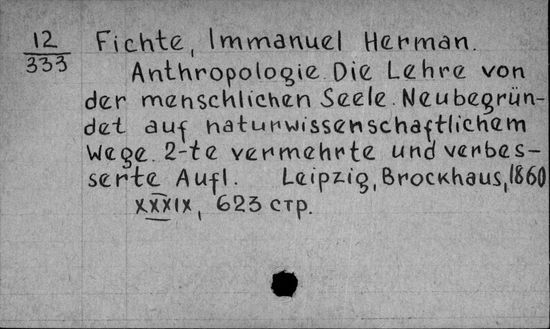 12 Fichte, Immanuel Herman.
333 Anthropologie. Die Lehre von
der menschlichen Seele. Neubegrün-
det auf naturwissenschaftlichem
Wege. 2-te vermehrte und verbes-
serte Aufl. Leipzig, Brockhaus, 1860
XXXIX, 623 стр.